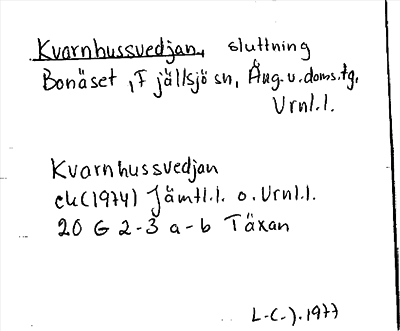 Kvarnhussvedjan, sluttning
Bonäset, Fjällsjö sn, Äng.u.doms.tg.
Vrnl.l.
Kvarnhussvedjan
ek(1974) Jämtl.l. o. Vrnl.l.
20 G 2-3 a-b Täxan
L-C-). 1977